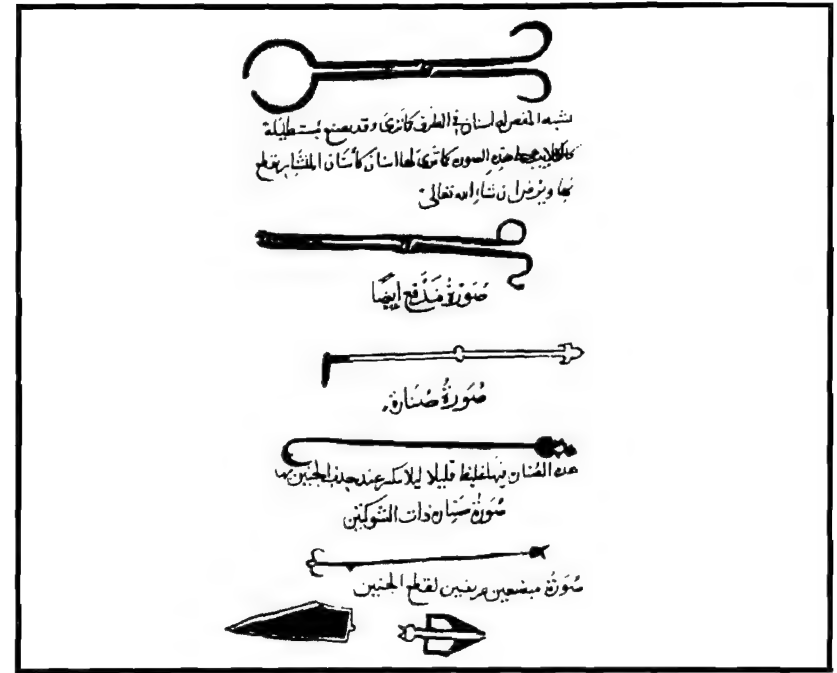 تشبه المقص لها اسنان في الطرف كما ترى وقد يصنع مستطيلة
كالكلاليب على هذه الصورة كما ترى لها اسنان كأسنان المنشار يقطع
بها ويرض ان شاء الله تعالى
صُورَةُ مَدْفَع ايضًا
صُورَةُ صنارة
هذه الصنارة فيها غلظ قليلا ليلا تنكسر عند جذب الجنين بها
صُورَة صنارة ذات الشوكتين
صُورَةُ مبضعين عريضين لقطع الجنين